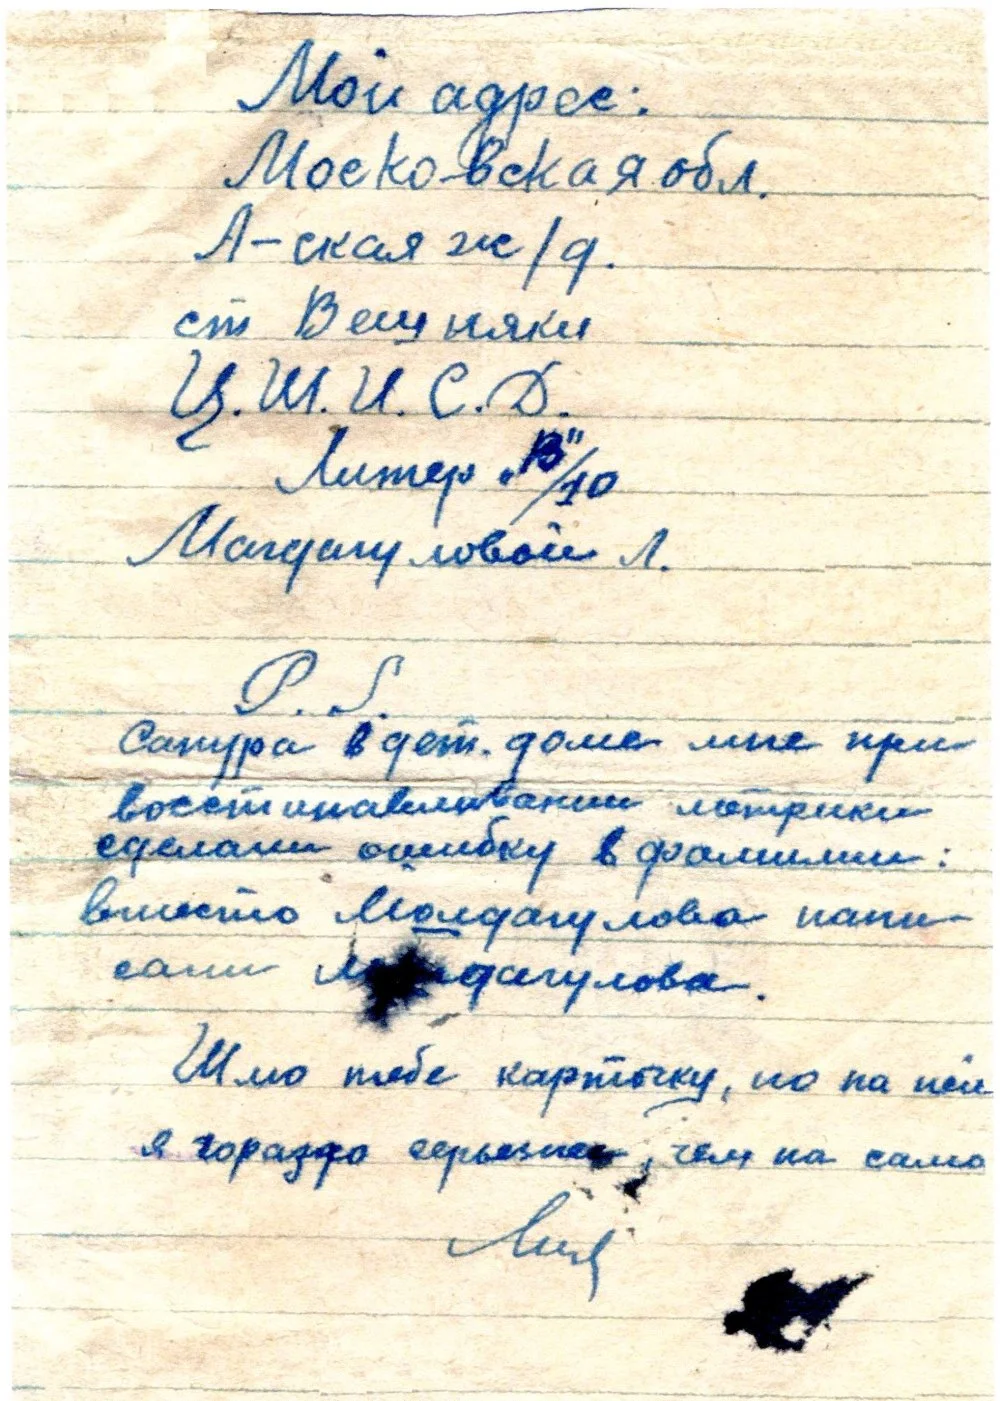 Мой адрес:
Московская обл.
Л-ская ж/д.
ст Вешняки
Ц.Ш.И.С.Д.
Литер „В"/10
Магдагуловой Л.
P.S.
Сапура в дет. доме мне при
восстинавливании метрики
сделали ошибку в фамилии:
вместо Молдагулова напи-
сали дагулова.
Шлю тебе карточку, но на ней
я гораздо серьезнее, чем на само
Лия